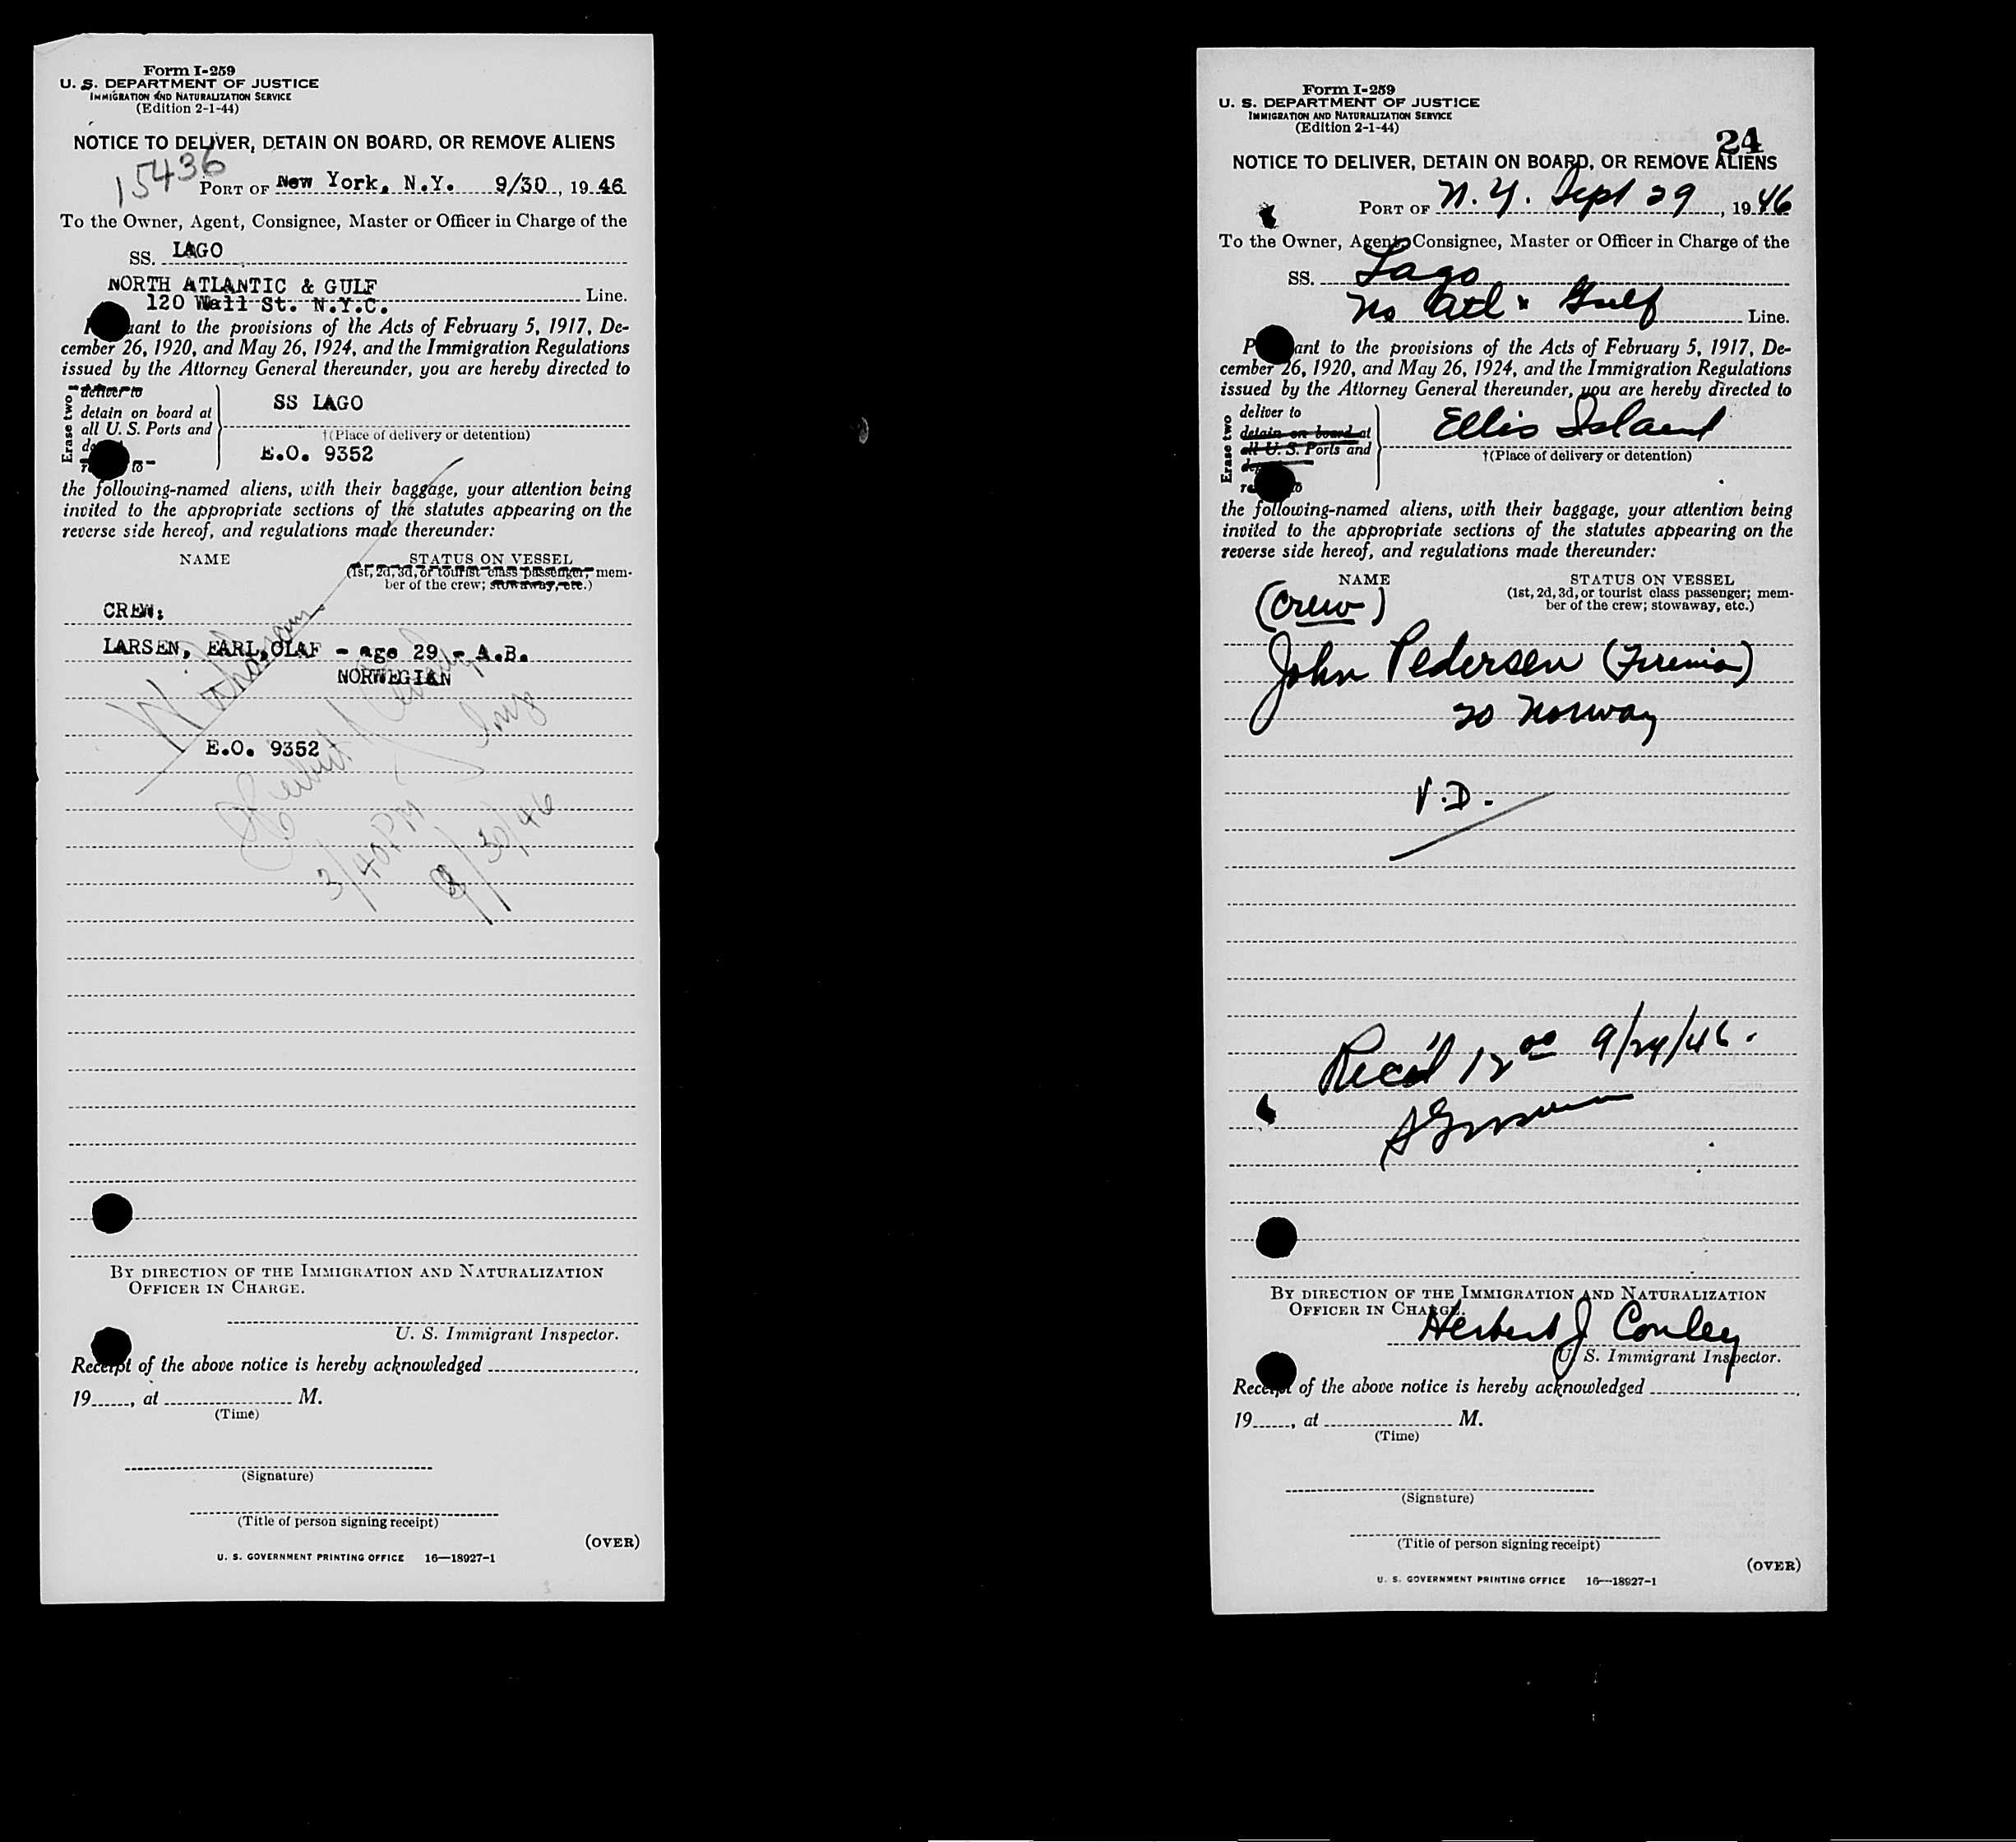 Form I-259
U. S. DEPARTMENT OF JUSTICE
IMMIGRATION AND NATURALIZATION SERVICE
(Edition 2-1-44)
NOTICE TO DELIVER, DETAIN ON BOARD, OR REMOVE ALIENS
15436
PORT OF New York, N.Y. 9/30, 19 46
To the Owner, Agent, Consignee, Master or Officer in Charge of the
SS. LAGO
NORTH ATLANTIC & GULF
120 Wall St. N.Y.C. Line.
to the provisions of the Acts of February 5, 1917, De-
cember 26, 1920, and May 26, 1924, and the Immigration Regulations
issued by the Attorney General thereunder, you are hereby directed to
Erase two
deliver to
detain on board at
all U. S. Ports and
to
SS LAGO
†(Place of delivery or detention)
E.O. 9352
the following-named aliens, with their baggage, your attention being
invited to the appropriate sections of the statutes appearing on the
reverse side hereof, and regulations made thereunder:
NAME STATUS ON VESSEL
(1st, 2d, 3d, or tourist class passenger; mem-
ber of the crew; stowaway, etc.)
CREW:
LARSEN, EARL OLAF - age 29 - A.B.
NORWEGIAN
E.O. 9352
3/40 PM
9/30/46
BY DIRECTION OF THE IMMIGRATION AND NATURALIZATION
OFFICER IN CHARGE.
U. S. Immigrant Inspector.
Receipt of the above notice is hereby acknowledged
19, at M.
(Time)
(Signature)
(Title of person signing receipt)
(OVER)
U. S. GOVERNMENT PRINTING OFFICE 16—18927-1
Form I-259
U. S. DEPARTMENT OF JUSTICE
IMMIGRATION AND NATURALIZATION SERVICE
(Edition 2-1-44)
24
NOTICE TO DELIVER, DETAIN ON BOARD, OR REMOVE ALIENS
PORT OF N.Y. Sept 29, 19 46
To the Owner, Agent, Consignee, Master or Officer in Charge of the
SS. Lago
No Atl & Gulf Line.
to the provisions of the Acts of February 5, 1917, De-
cember 26, 1920, and May 26, 1924, and the Immigration Regulations
issued by the Attorney General thereunder, you are hereby directed to
Erase two
deliver to
detain on board at
all U. S. Ports and
to
Ellis Island
†(Place of delivery or detention)
the following-named aliens, with their baggage, your attention being
invited to the appropriate sections of the statutes appearing on the
reverse side hereof, and regulations made thereunder:
NAME STATUS ON VESSEL
(1st, 2d, 3d, or tourist class passenger; mem-
ber of the crew; stowaway, etc.)
(Crew)
John Pedersen (Fireman)
20 Norway
V.D.
Rec'd 12 00 9/29/46.
BY DIRECTION OF THE IMMIGRATION AND NATURALIZATION
OFFICER IN CHARGE.
Herbert J Conley
U. S. Immigrant Inspector.
Receipt of the above notice is hereby acknowledged
19, at M.
(Time)
(Signature)
(Title of person signing receipt)
(OVER)
U. S. GOVERNMENT PRINTING OFFICE 16—18927-1